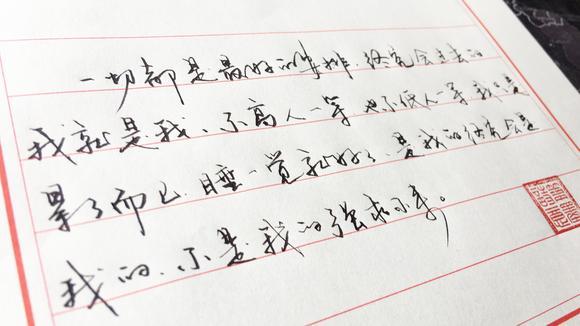 一切都是最好的安排、终究会过去的
我就是我、不高人一等也不低人一等我只是
累了而已、睡一觉就好了、是我的终究会是
我的、不是我的强求不来。